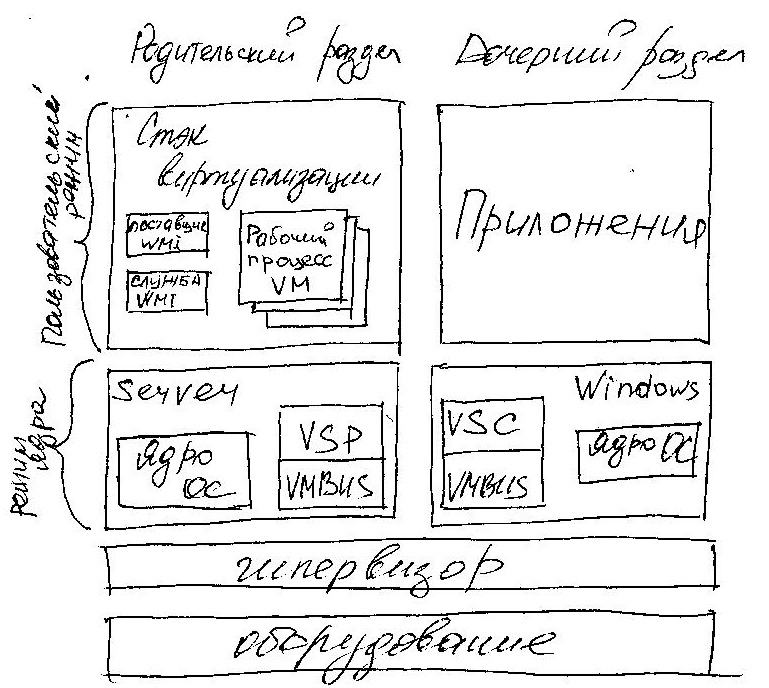 Родительский раздел
Дочерний раздел
Пользовательский
режим
Стэк
виртуализации
поставщик
WMI
служба
WMI
Рабочий
процесс
VM
Приложения
режим
ядра
Server
Ядро
ОС
VSP
VMBUS
Windows
VSC
VMBUS
Ядро ОС
гипервизор
оборудование